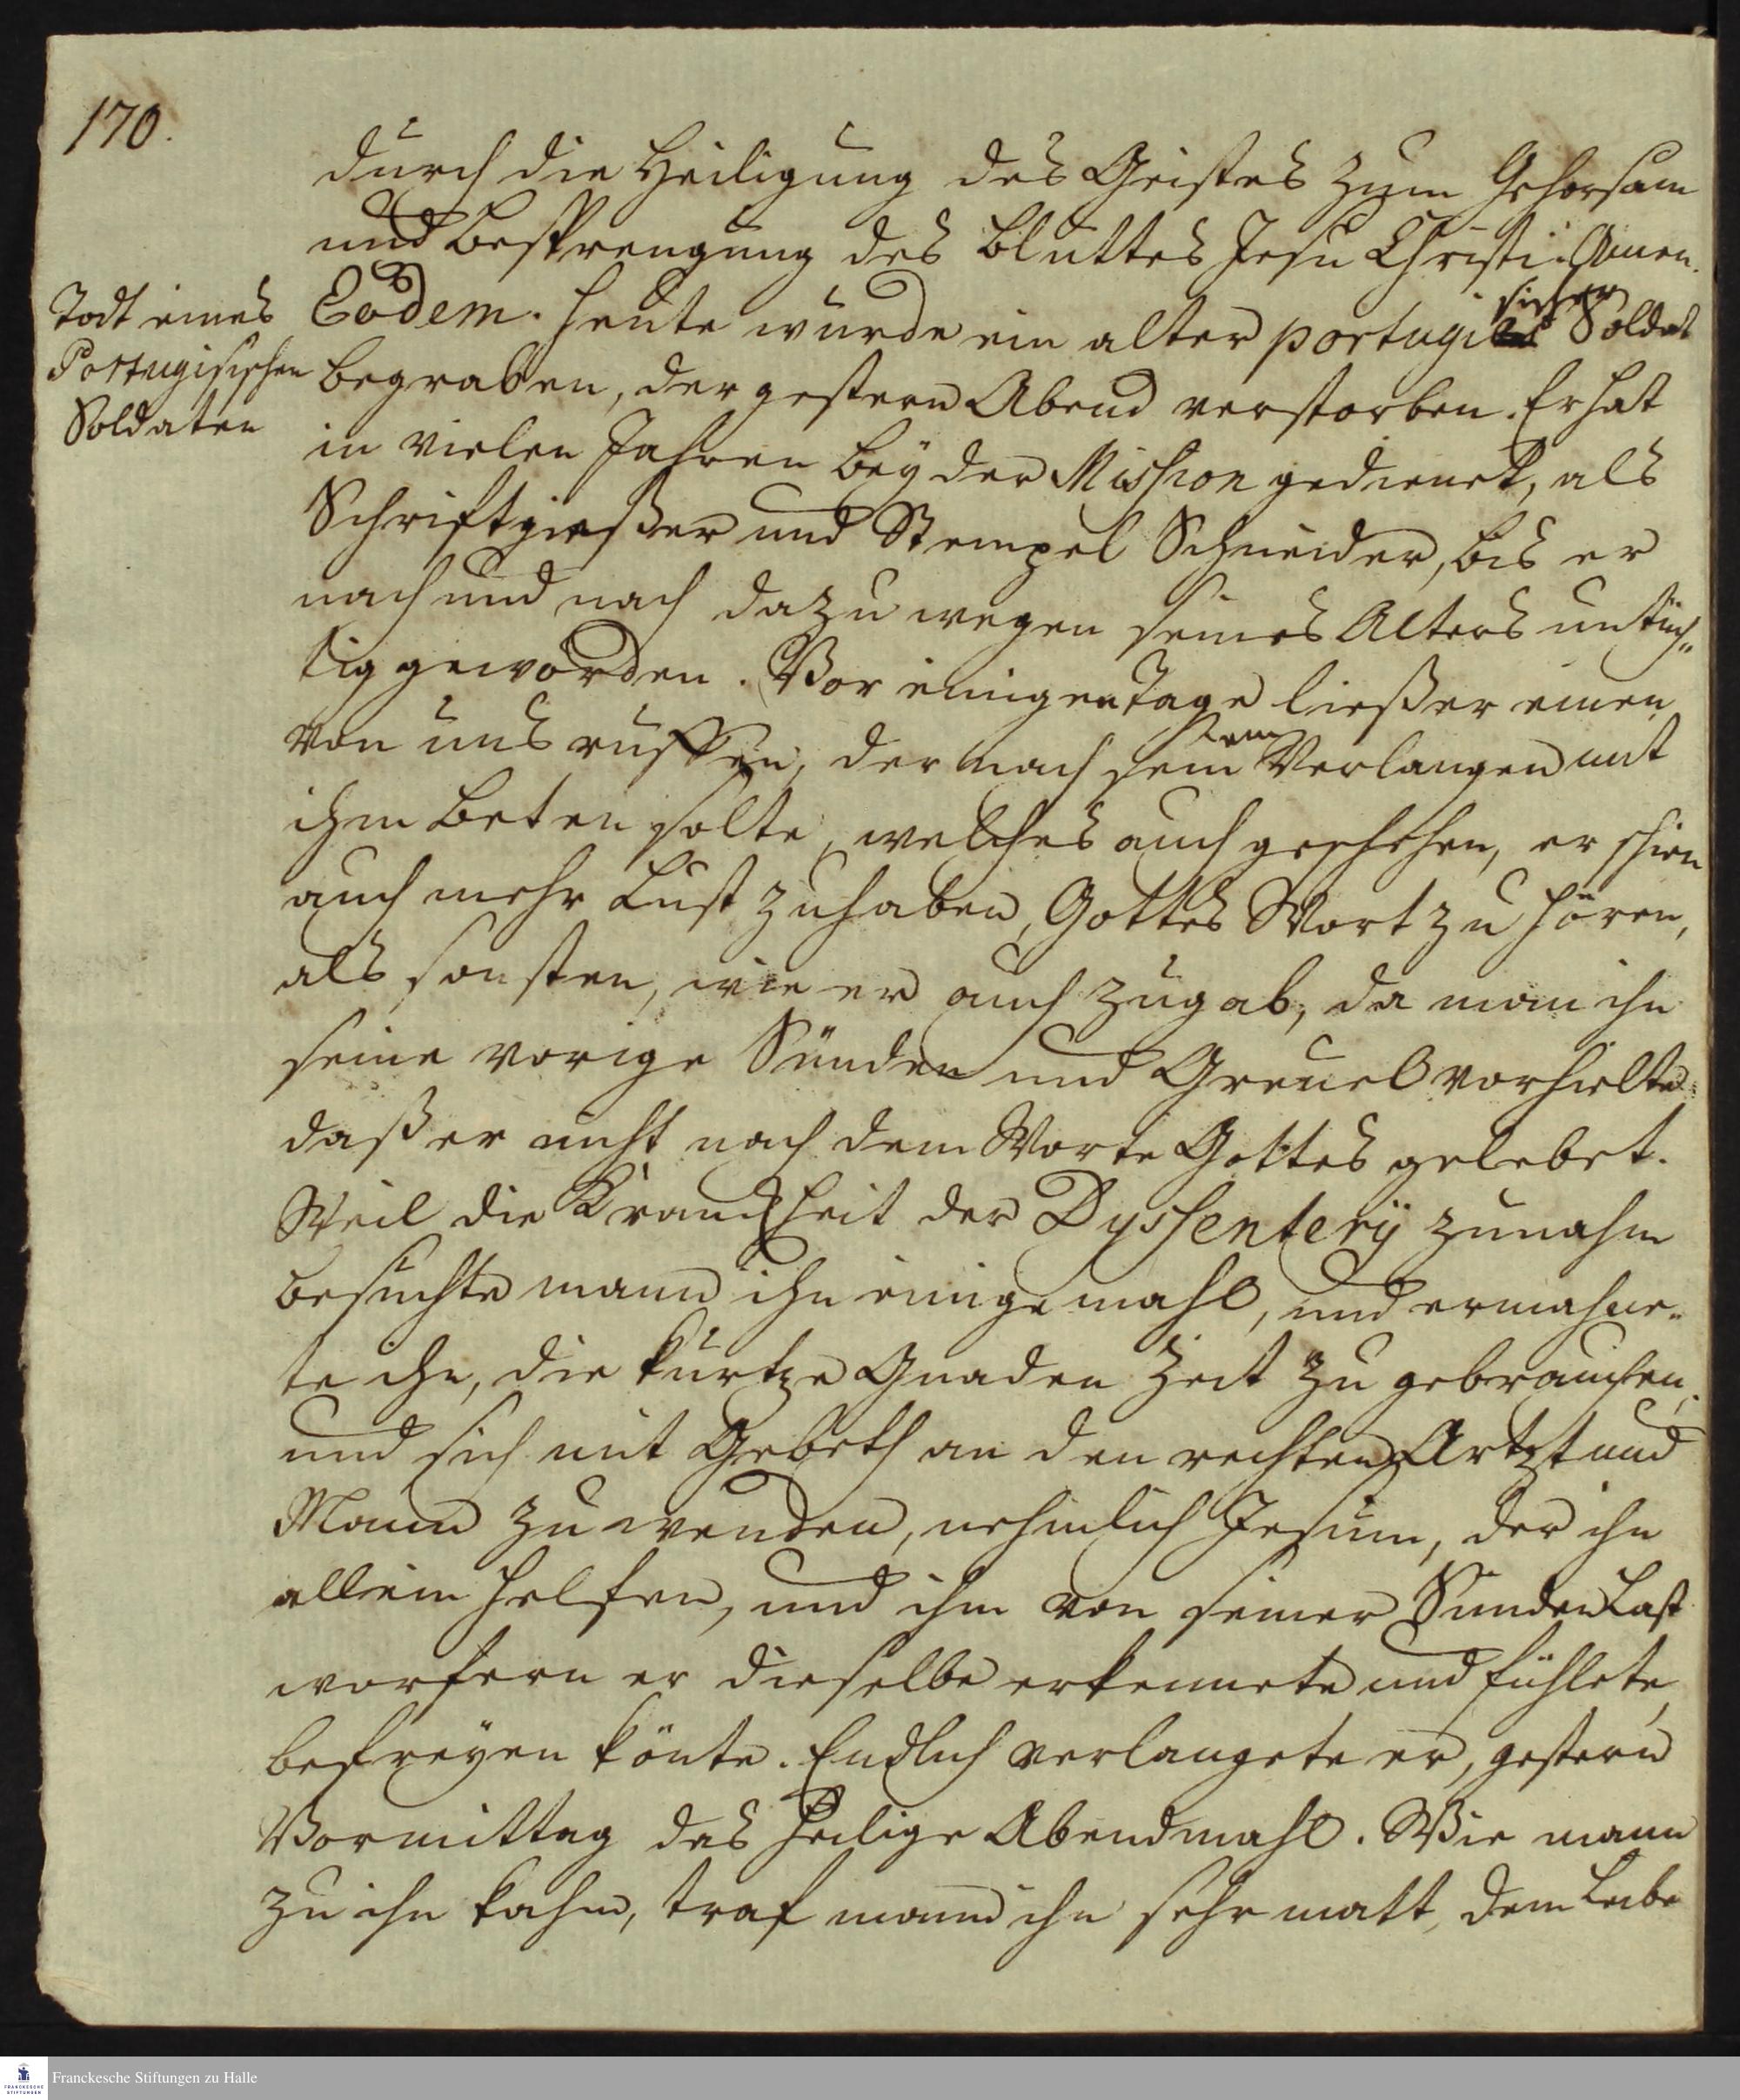 170.
durch die Heiligung des Geistes zum Gehorsam
und Besprengung des Bluttes Jesu Christi. Amen.
Todt eines
Portugisischen
Soldaten
Eodem. Heute wurde ein alter portugisischer Soldat
begraben, der gestern Abend verstorben. Er hat
in vielen Jahren bey der Mission gedienet, als
Schriftgießer und Stempel Schneider, bis er
nach und nach dazu wegen seines Alters untüch„
tig geworden. Vor einigen Tage ließ er einen
von uns ruffen, der nach seinem Verlangen mit
ihm beten solte, welches auch geschehen, er schien
auch mehr Lust zu haben, Gottes Wort zu hören,
als sonsten, wie er auch zugab, da man ihn
seine vorige Sünden und Greuel vorhielte
daß er nicht nach dem Worte Gottes gelebet.
Weil die Kranckheit der Dyssenterÿ zunahm
besuchte mann ihn einige mahl, und ermahne„
te ihn, die kurtze Gnaden Zeit zu gebrauchen,
und sich mit Gebeth an den rechten Artzt und
Mann zu wenden, nehmlich Jesum, der ihn
allein helfen, und ihm von seiner Sünden Last
worfern er dieselbe erkennete und fühlete,
befreyen könte. Endlich verlangete er, gestern
Vormittag das heilige Abendmahl. Wie mann
zu ihn kahm, traf mann ihn sehr matt, dem Leibe
Franckesche Stiftungen zu Halle
FRANCKESCHE
STIFTUNGEN